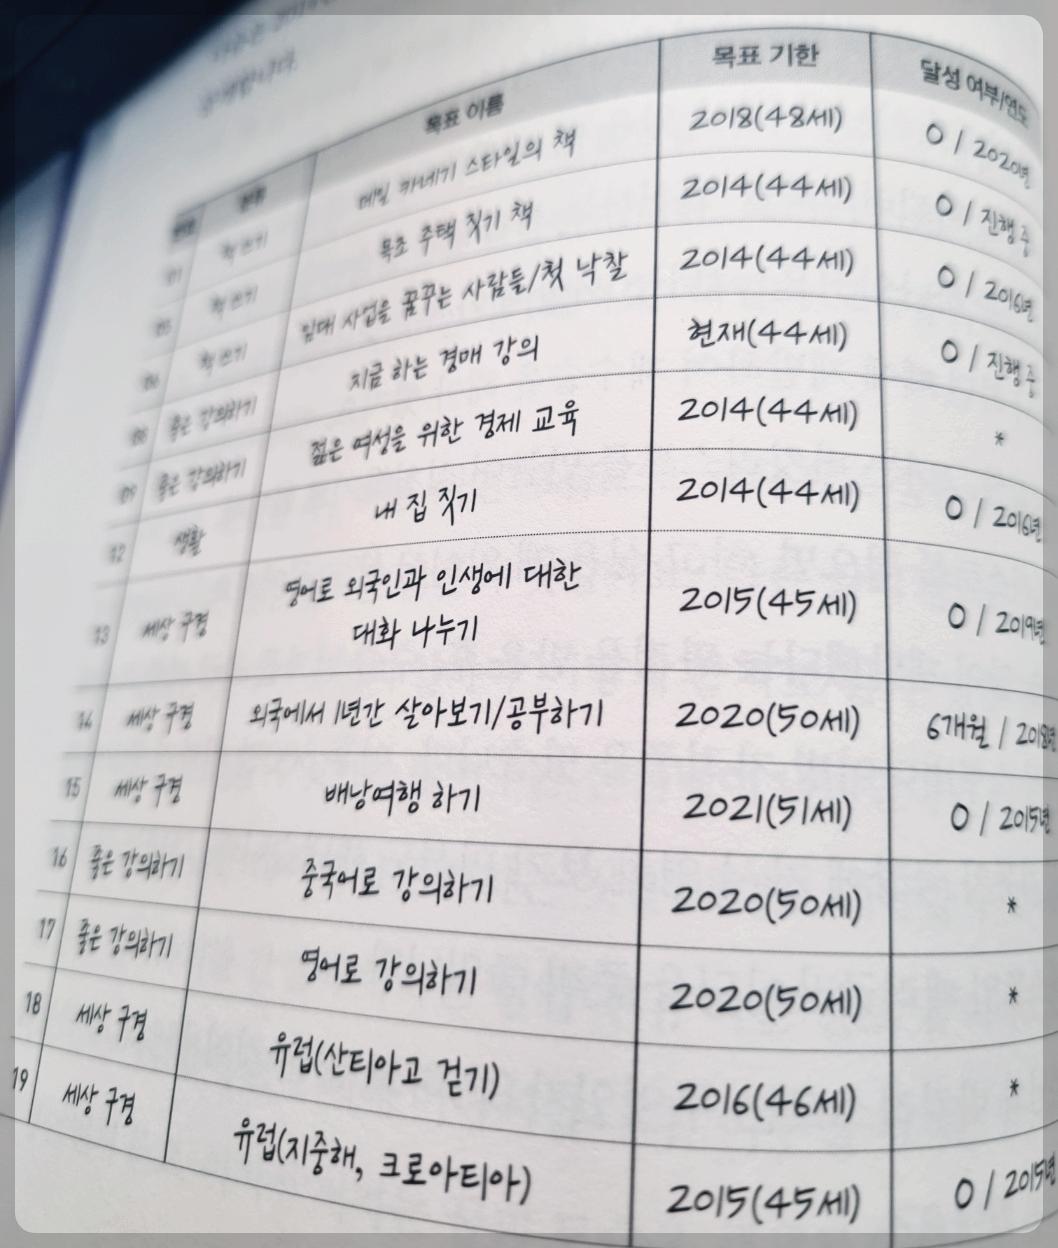 번호 분류 목표 이름 목표 기한 달성 여부/연도
01 책 쓰기 데일 카네기 스타일의 책 2018(48세) O / 2020년
05 책 쓰기 목조 주택 짓기 책 2014(44세) O / 진행 중
06 책 쓰기 임대 사업을 꿈꾸는 사람들/첫 낙찰 2014(44세) O / 2016년
08 좋은 강의하기 지금 하는 경매 강의 현재(44세) O / 진행 중
09 좋은 강의하기 젊은 여성을 위한 경제 교육 2014(44세) *
12 생활 내 집 짓기 2014(44세) O / 2016년
13 세상 구경 영어로 외국인과 인생에 대한
대화 나누기 2015(45세) O / 2019년
14 세상 구경 외국에서 1년간 살아보기/공부하기 2020(50세) 6개월 / 2018년
15 세상 구경 배낭여행 하기 2021(51세) O / 2015년
16 좋은 강의하기 중국어로 강의하기 2020(50세) *
17 좋은 강의하기 영어로 강의하기 2020(50세) *
18 세상 구경 유럽(산티아고 걷기) 2016(46세) *
19 세상 구경 유럽(지중해, 크로아티아) 2015(45세) O / 2015년